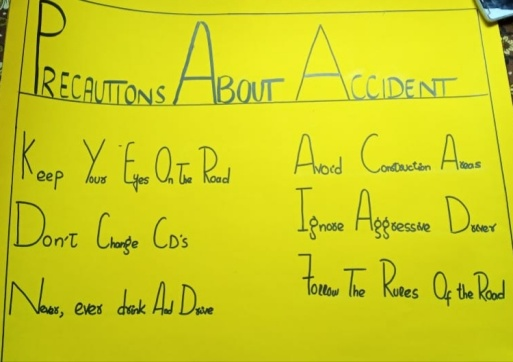 PRECAUTIONS ABOUT ACCIDENT
Keep Your Eyes On The Road
Don't Change CD's
Never, ever drink And Drive
Avoid Construction Areas
Ignore Aggressive Driver
Follow The Rules Of the Road